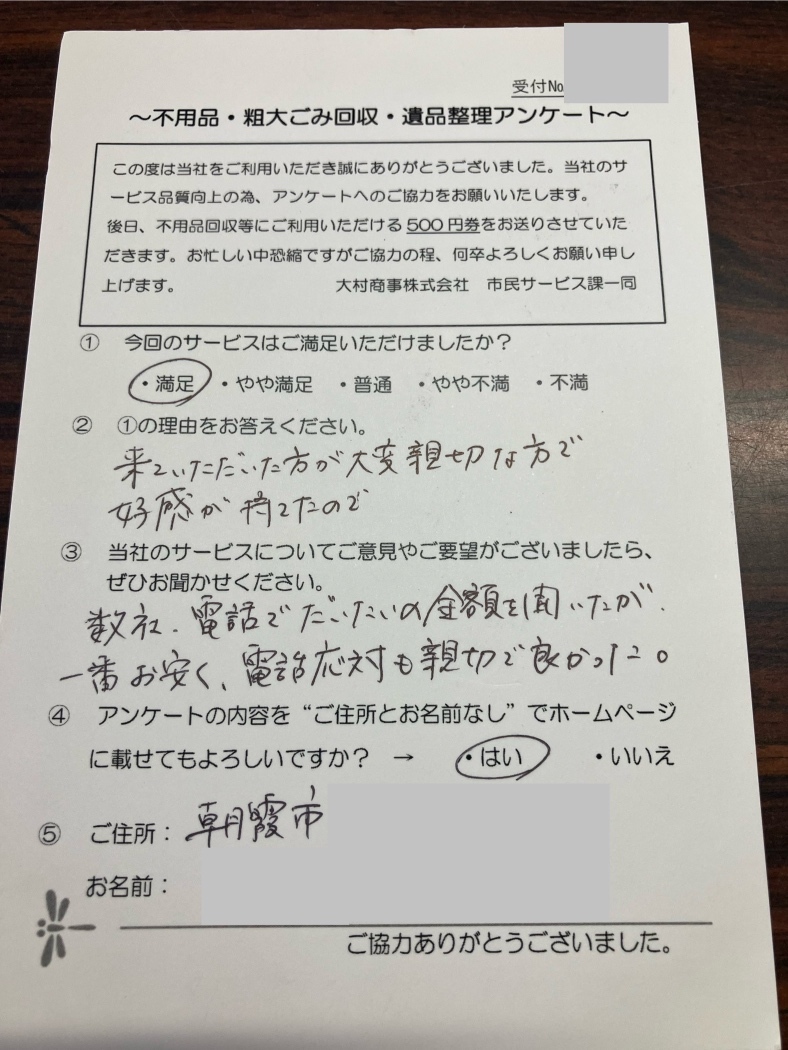 受付No
～不用品・粗大ごみ回収・遺品整理アンケート～
この度は当社をご利用いただき誠にありがとうございました。当社のサ
ービス品質向上の為、アンケートへのご協力をお願いいたします。
後日、不用品回収等にご利用いただける500円券をお送りさせていた
だきます。お忙しい中恐縮ですがご協力の程、何卒よろしくお願い申し
上げます。 大村商事株式会社 市民サービス課一同
① 今回のサービスはご満足いただけましたか？
・満足 ・やや満足 ・普通 ・やや不満 ・不満
② ①の理由をお答えください。
来ていただいた方が大変親切な方で
好感が持てたので
③ 当社のサービスについてご意見やご要望がございましたら、
ぜひお聞かせください。
数社、電話でだいたいの金額を聞いたが、
一番お安く、電話応対も親切で良かった。
④ アンケートの内容を“ご住所とお名前なし”でホームページ
に載せてもよろしいですか？ → ・はい ・いいえ
⑤ ご住所： 朝霞市
お名前：
ご協力ありがとうございました。